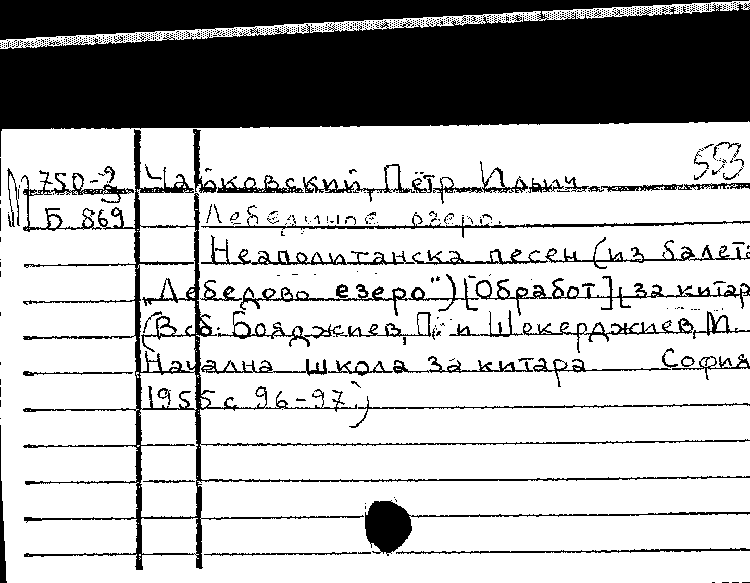 553
750-2 Чайковский, Пётр Ильич
Б 869 Лебединое озеро.
Неаполитанска песен (из балета
„Лебедово езеро") [Обработ.] за китар
(В сб.: Бояджиев, П. и Шекерджиев, М.
Начална школа за китара София
1955 с 96-97.)